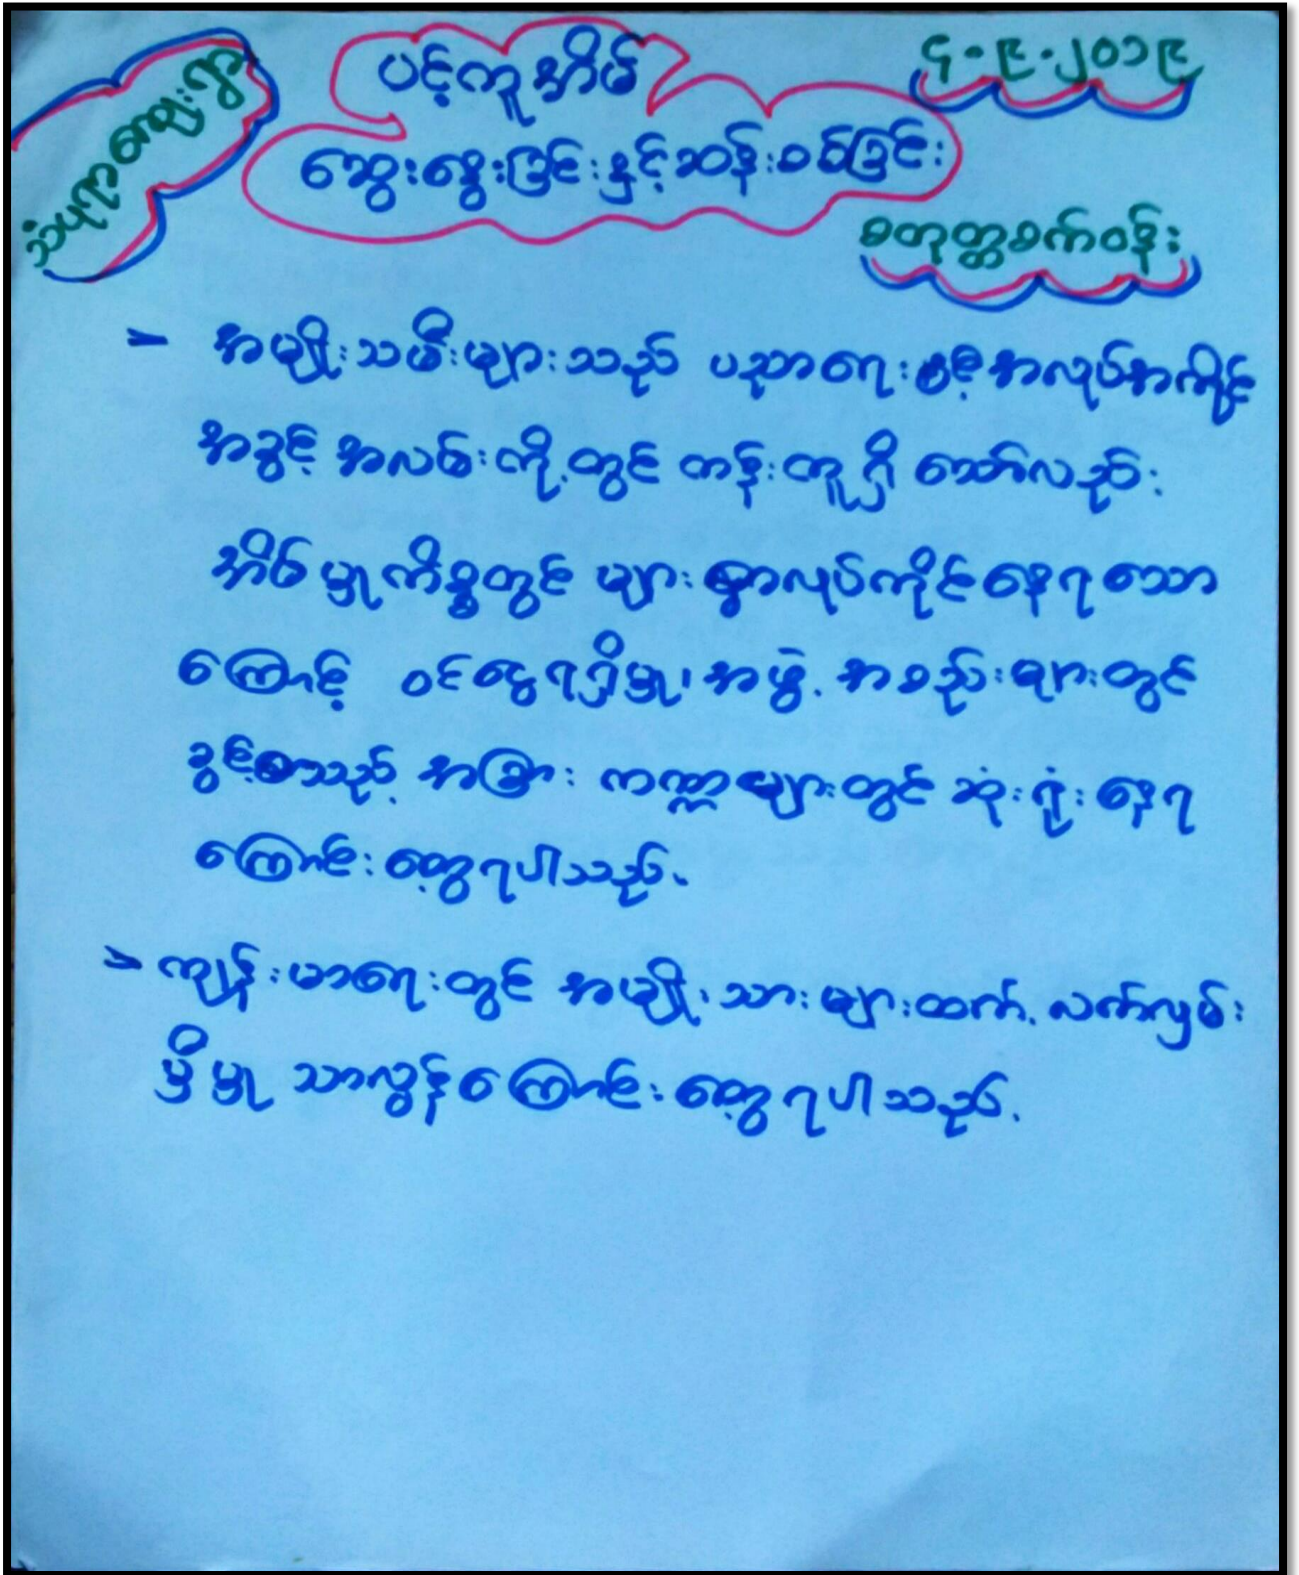 သံပုရာကျေးရွာ
ပင့်ကူအိမ်
ဆွေးနွေးခြင်းနှင့်ဆန်းစစ်ခြင်း
၄-၉-၂၀၁၉
စတုတ္ထစက်ဝန်း
- အမျိုးသမီးများသည် ပညာရေးနှင့်အလုပ်အကိုင်
အခွင့် အလမ်းတို့တွင် တန်းတူရှိ သော်လည်း
အိမ်မှုကိစ္စတွင် များစွာလုပ်ကိုင်နေရသော
ကြောင့် ဝင်ငွေရရှိမှု၊ အဖွဲ့အစည်းများတွင်
ခွင့်စသည့် အခြား ကဏ္ဍများတွင် ဆုံးရှုံးနေရ
ကြောင်းတွေ့ရပါသည်။
- ကျန်းမာရေးတွင် အမျိုးသားများထက် လက်လှမ်း
မှီမှု သာလွန်ကြောင်းတွေ့ရပါသည်။